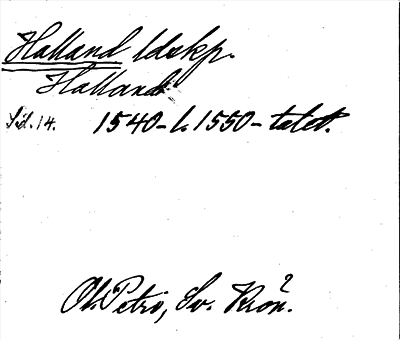 Halland ldskp.
Halland
Sid. 14. 1540- l. 1550- talet.
Ol. Petri, Sv. Krön.²